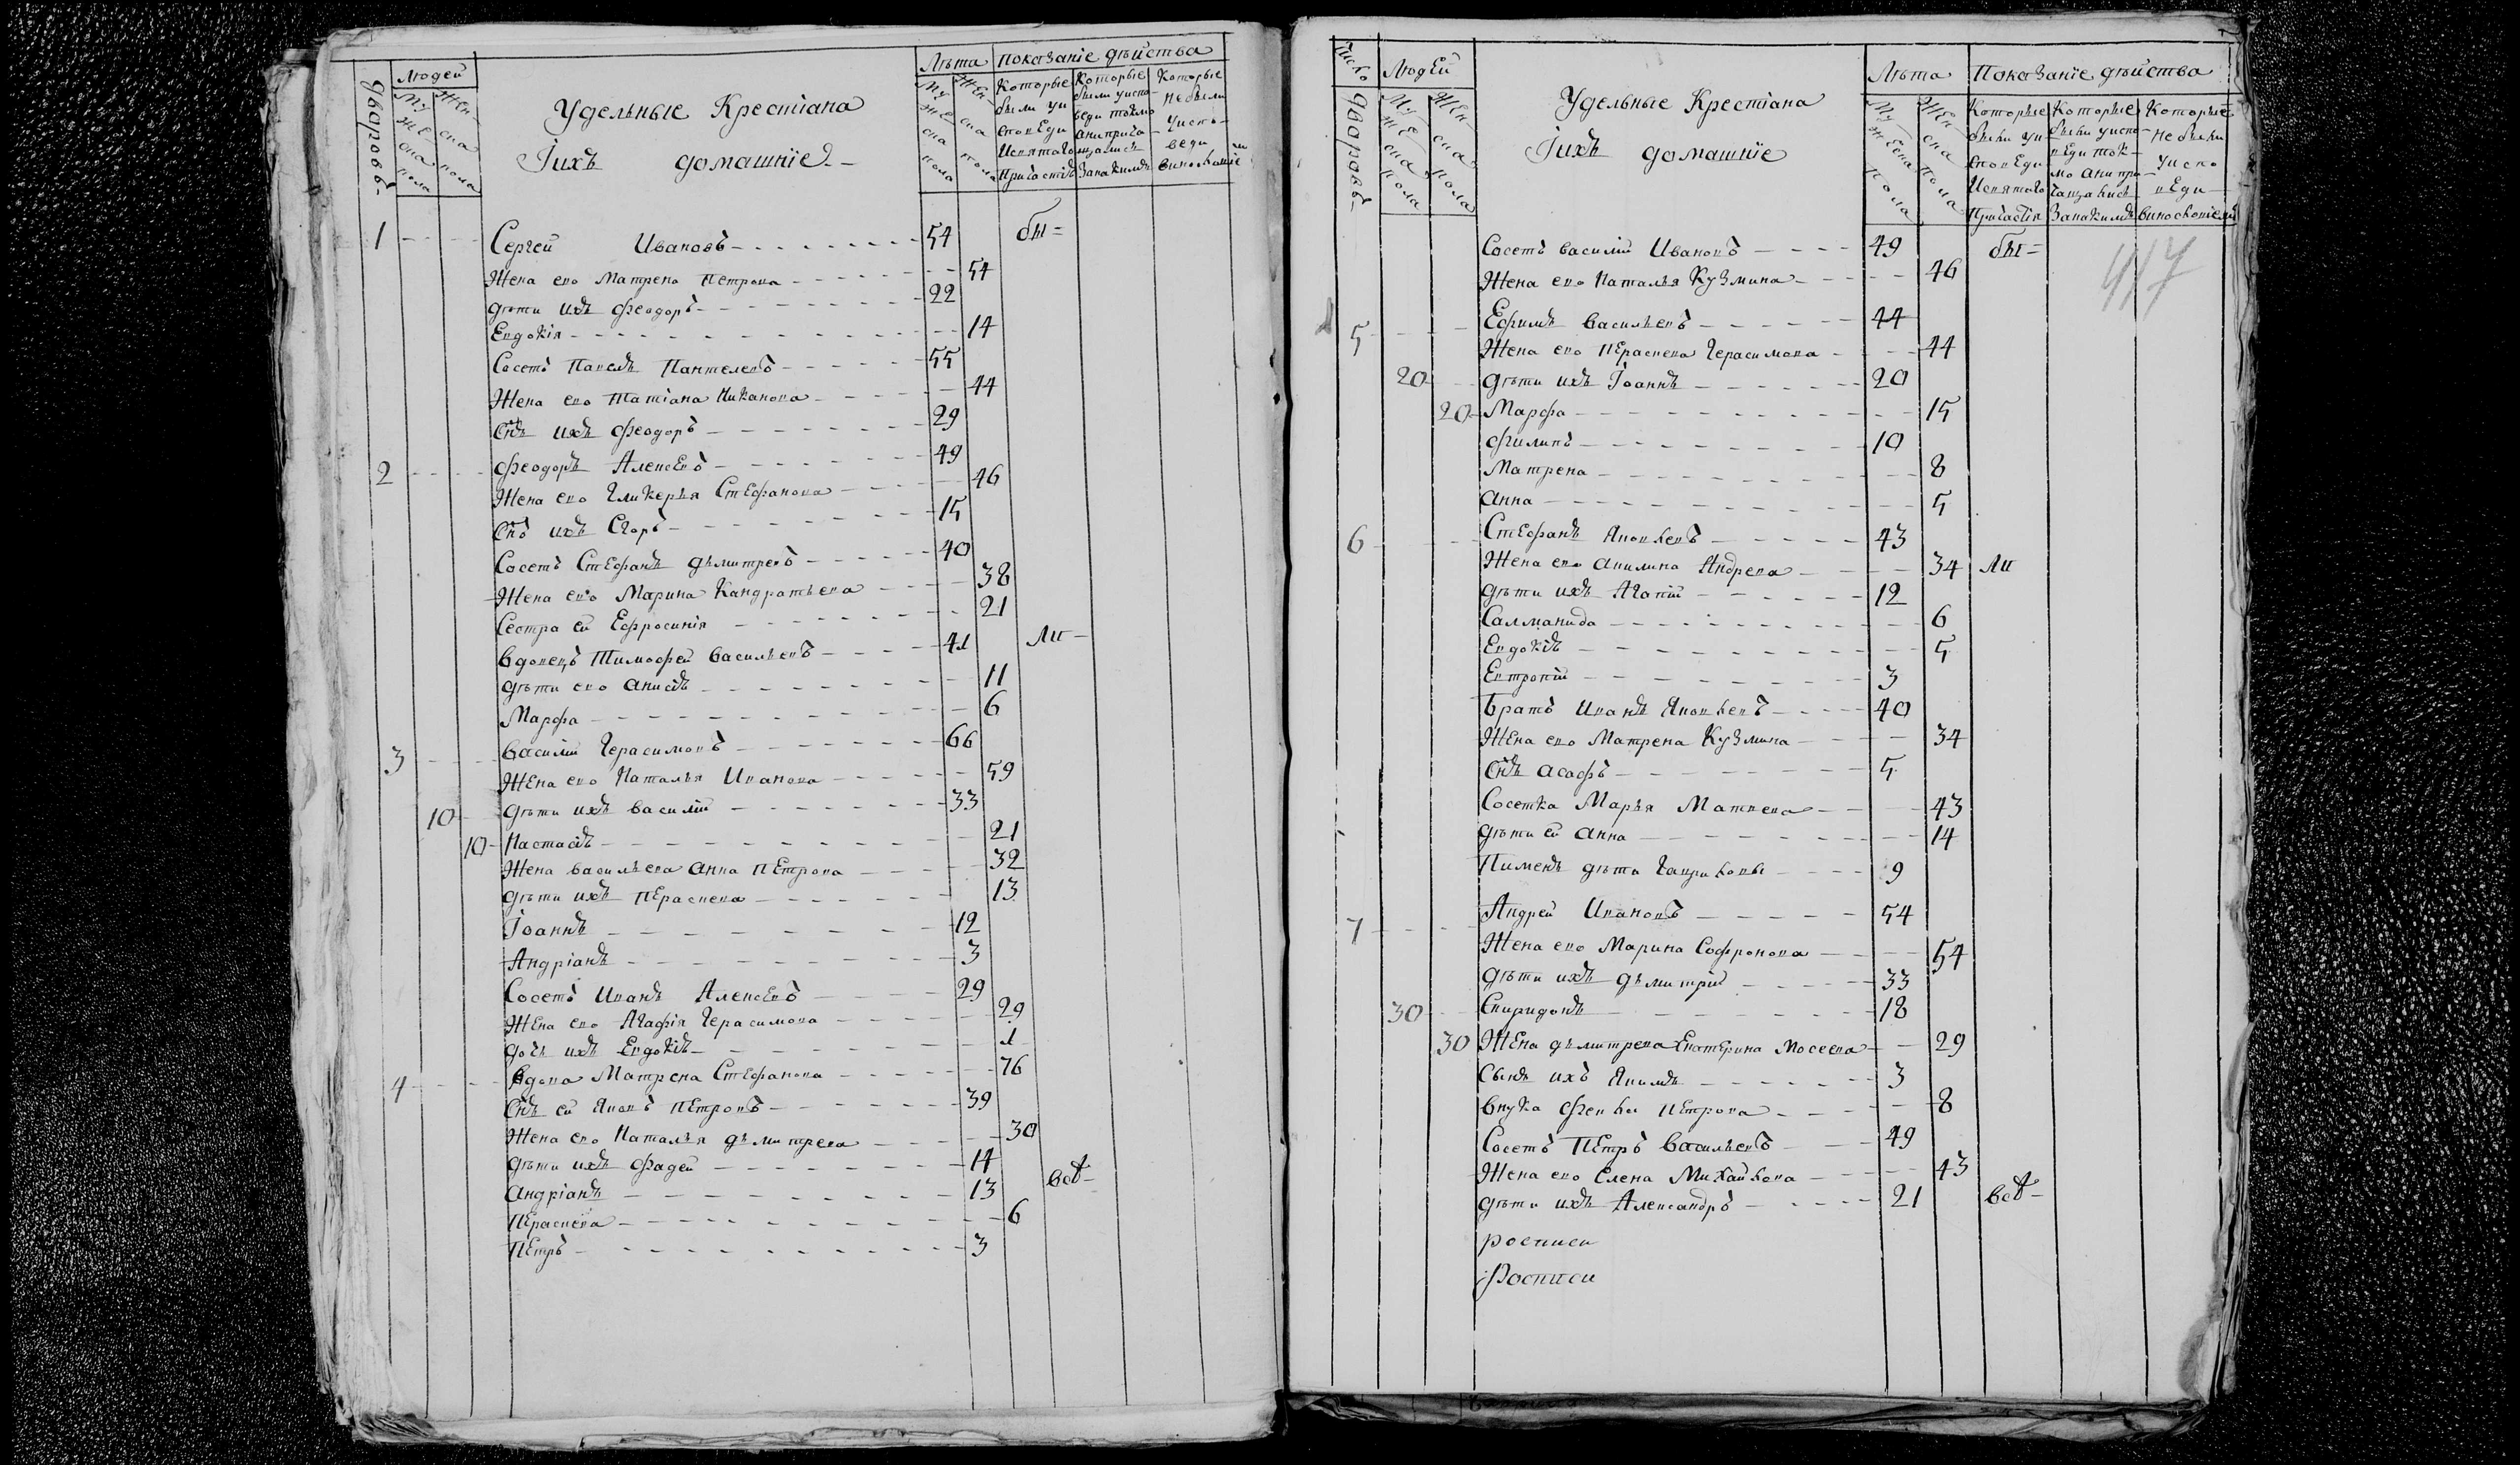 дваровъ
Людей
Мужеска пола
Женска пола
Удельные Крестіана
Iихъ домашніе
Лѣта
Мужеска пола
Женска пола
показаніе дѣйства
Которые были уисповЕди Исвятаго
Которые были уисповеди токмо
Которые небыли Уисповеди
1 Сергей Ивановъ 54 бы=
Жена его Матрена Петрова 54
дѣти ихъ Феодоръ 22
Евдокія 14
Сосетъ Павелъ Пантелевъ 55
Жена его Татіана Никанова 44
Снъ ихъ Феодоръ 29
2 Феодоръ АлексЕвъ 49
Жена его Гликерья СтЕфанова 46
Снъ ихъ Егоръ 15
Сосетъ СтЕфанъ дьмитревъ 40
Жена его Марина Кандратьева 38
Сестра ей Ефросинія 21
вдовецъ Тимофей васильевъ 41 Ли
дѣти его анисіъ 11
Марфа 6
3 василій Герасимовъ 66
ЖЕна его Наталья Иванова 59
10 дѣти ихъ василій 33
10 Настасіъ 21
Жена васильева анна пЕтрова 32
дѣти ихъ пЕраскева 13
Iоаннъ 12
Андріанъ 3
Сосетъ Иванъ АлексЕвъ 29
ЖЕна его Агафія Герасимова 29
дочь ихъ Евдокіъ 1
4 вдова Матрена СтЕфанова 76
Снъ ей Яковъ пЕтровъ 39
Жена его Наталья дьмитрева 30
дѣти ихъ Фадей 14
андріанъ 13 всѣ
пЕраскева 6
пЕтръ 3
Число дваровъ
ЛюдЕй
Мужеска пола
ЖЕнска пола
Удельные Крестіана
Iихъ домашніе
Лѣта
Мужеска пола
ЖЕнска пола
Показаніе дѣйства
Которые были уисповЕди Исвятаго Причастія
Которые были уисповЕди токмо
Которые небыли уисповЕди
Сосетъ василій Ивановъ 49 бы=
417
Жена его Наталья Кузмина 46
5 Ефимъ васильевъ 44
Жена его пЕраскева Герасимова 44
20 дѣти ихъ Iоаннъ 20
20 Марфа 15
Филипъ 10
Матрена 8
анна 5
6 СтЕфанъ Яковлевъ 43
Жена его акилина Андрева 34 Ли
дѣти ихъ Агапій 12
Салманида 6
Евдокіъ 5
Евтропій 3
Братъ Иванъ Яковлевъ 40
ЖЕна его Матрена Кузмина 34
Снъ асафъ 5
Сосетка Марья Матвева 43
дѣти ей анна 14
Пименъ дѣти Гавриловы 9
7 Андрей Ивановъ 54
Жена его Марина Софронова 54
дѣти ихъ дьмитрій 33
30 Спиридонъ 18
30 ЖЕна дьмитрева Екатерина Мосеева 29
Сынъ ихъ Якимъ 3
внука Фекла пЕтрова 8
Сосетъ ПЕтръ васильевъ 49
Жена его Елена Михайлова 43
дѣти ихъ Александръ 21 всѣ
росписи
Росписи